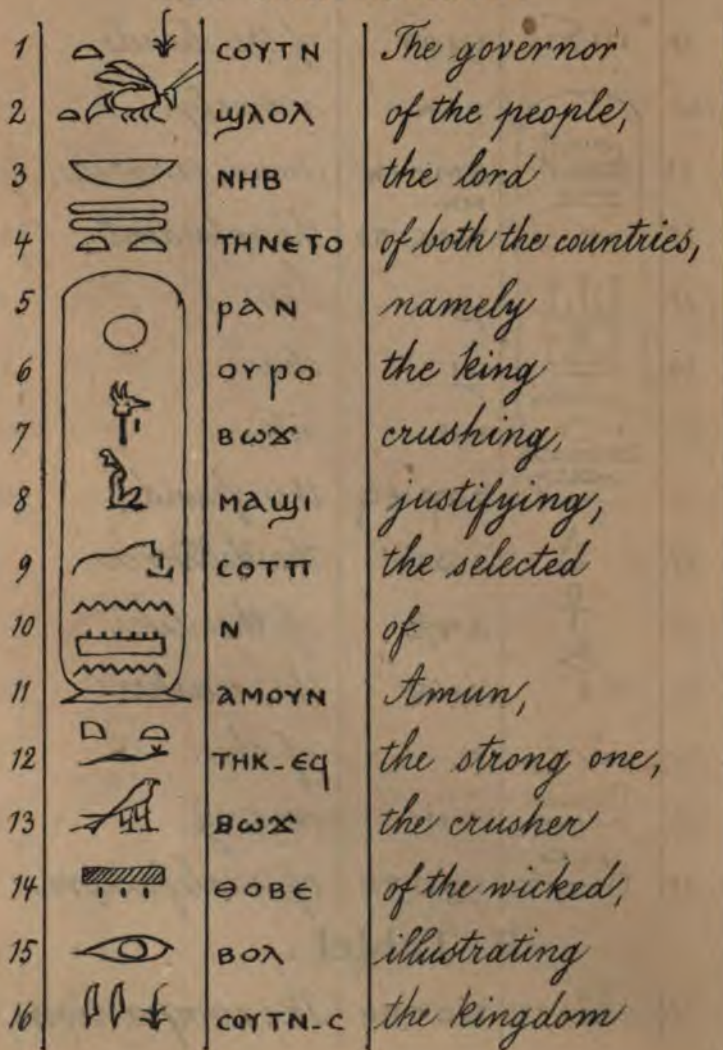 1 ⲥⲟⲩⲧⲛ The governor
2 ϣⲗⲟⲗ of the people,
3 ⲛⲏⲃ the lord
4 ⲧⲏⲛⲉⲧⲟ of both the countries,
5 ⲣⲁⲛ namely
6 ⲟⲩⲣⲟ the king
7 ⲃⲱϫ crushing,
8 ⲙⲁϣⲓ justifying,
9 ⲥⲟⲧⲡ the selected
10 ⲛ of
11 ⲁⲙⲟⲩⲛ Amun,
12 ⲧⲏⲕ-ⲉϥ the strong one,
13 ⲃⲱϫ the crusher
14 ⲑⲟⲃⲉ of the wicked,
15 ⲃⲟⲗ illustrating
16 ⲥⲟⲩⲧⲛ-ⲥ the kingdom